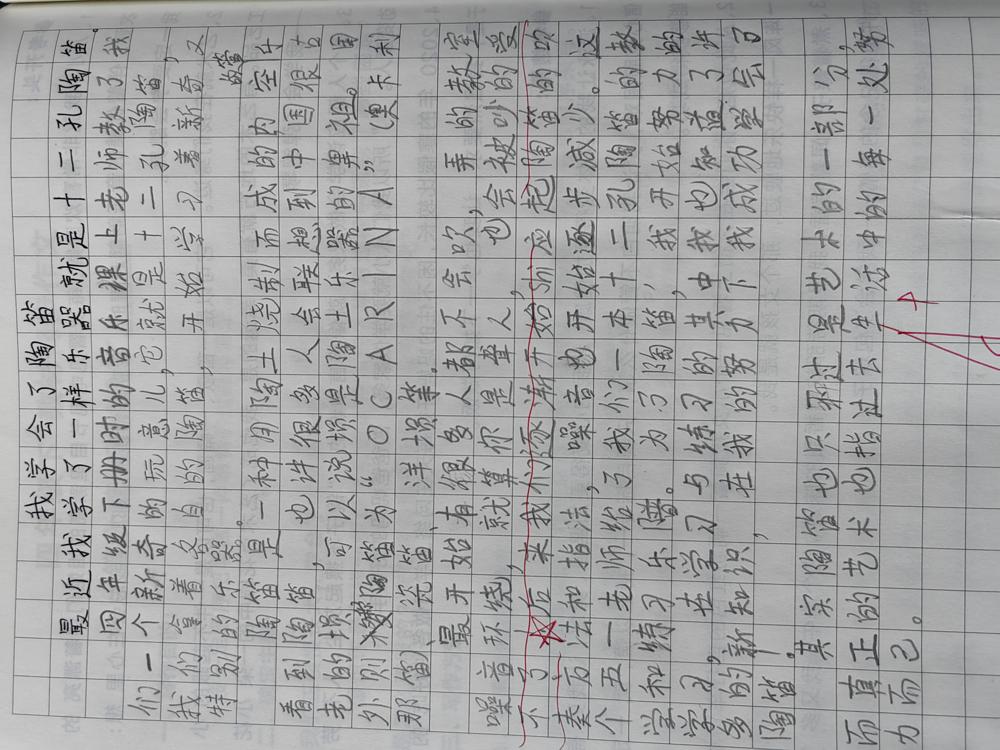 我学会了陶笛
最近我学了一样乐器就是十二孔陶笛。
四年级下册时的音乐课上老师教了我
们一个新奇的玩意儿,它就是十二孔陶笛,
我们拿着各自的陶笛,开始学习着新奇又
特别的乐器。
的管
陶笛是一种用陶土烧制而成的内空乐
看到陶笛,也许很多人会联想到中国很古
老的埙,可以说埙是陶土乐器的鼻祖。国
外则称陶笛为“OCARINA”(奥卡利
那笛)、瓷笛、洋埙等。
最开始有很多人都不会吹,弄的教室
噪音环绕,就算你是聋人,也会被吵的受
不了。后来我们逐渐开始shi应起陶笛的吹
奏方法和指法,噪音也开始逐步减少。这
个五一老师给了我们一本十二孔陶笛的教
学和练习乐谱。为了陶笛,我开始努力的
学习,在学习与练习的其中我也知道了许
多的新知识,在我的努力下我成功学会了
陶笛!
其实陶笛也只不过是艺术的一部分,
而真正的艺术也指过去生活中的每一处努
力而已。